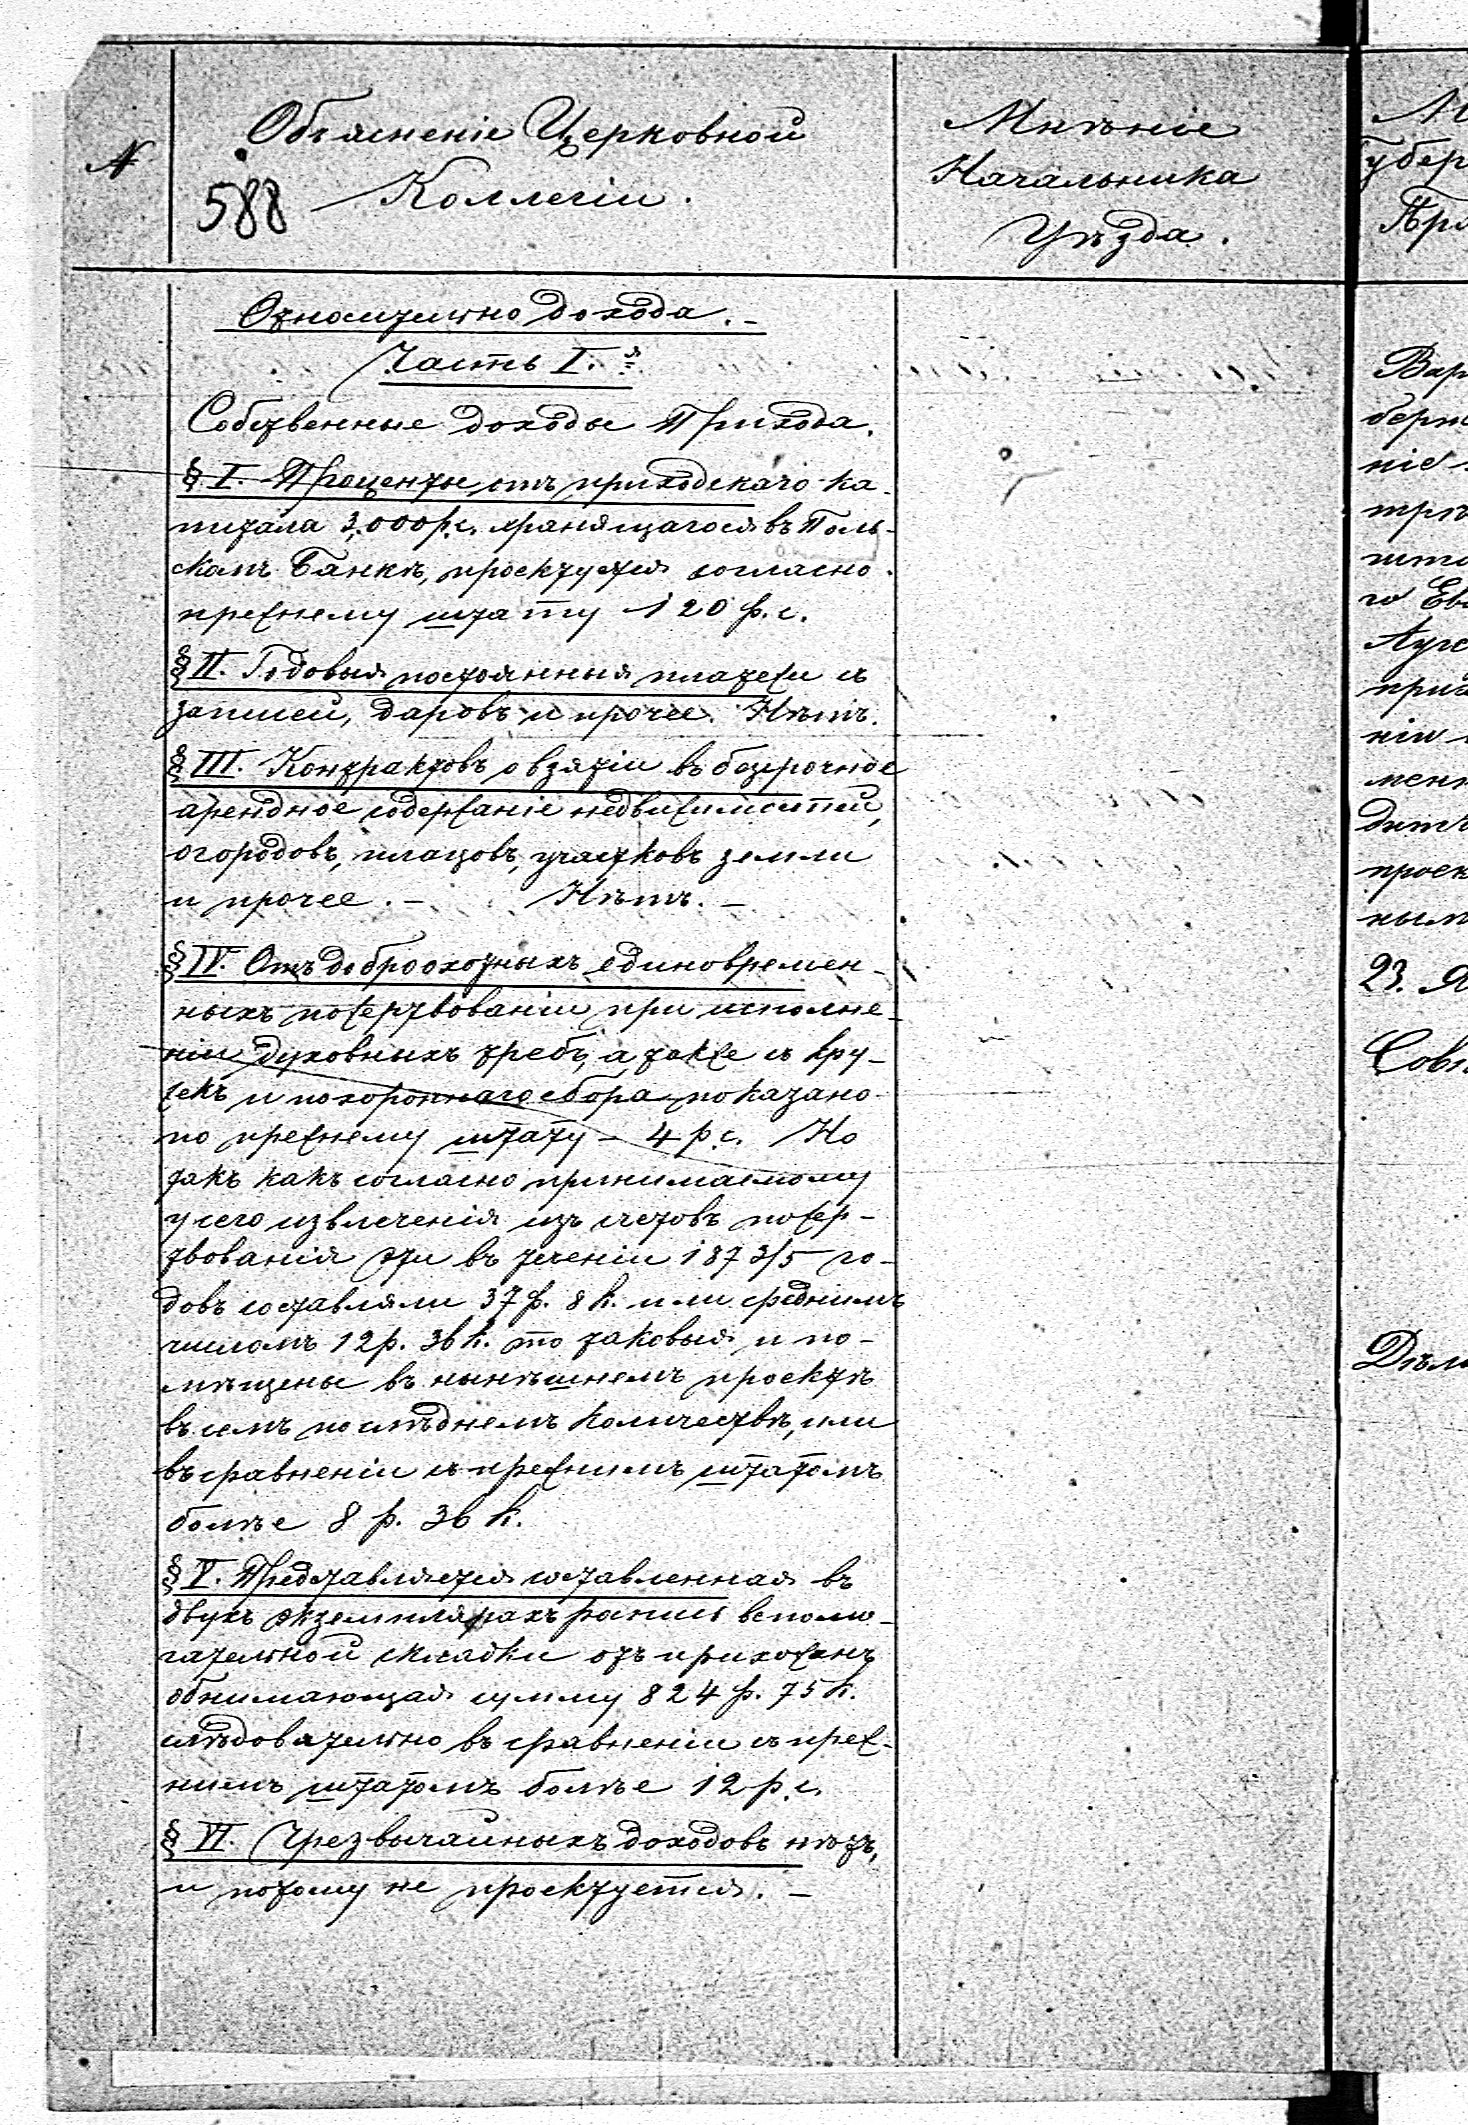 №
Объясненіе Церковной
588 Коллегіи.
Мнѣніе
Начальника
Уѣзда.
Относительно дохода.
Часть I.я
Собственные доходы Прихода.
§ I. Проценты отъ приходскаго ка-
питала 3,000 р.с. хранящагося въ Поль-
скомъ Банкѣ, проектуется согласно
прежнему штату 120 р.с.
§ II. Годовыя постоянныя платежи съ
записей, даровъ и прочее. Нѣтъ.
§ III. Контрактовъ о взятіи въ безсрочное
арендное содержаніе недвижимостей,
огородовъ, плацовъ, участковъ земли
и прочее. – Нѣтъ. –
§ IV. Отъ доброохотныхъ единовремен-
ныхъ пожертвованіи при исполне-
ніи духовныхъ требъ, а также съ кру-
жекъ и похороннаго сбора показано
по прежнему штату – 4 р.с. Но
такъ какъ согласно принимаемому
у сего извлеченія изъ счетовъ пожер-
твованія эти въ теченіи 1873/5 го-
довъ составляли 37 р. 8 к. или среднимъ
числомъ 12 р. 36 к. то таковыя и по-
мѣщены въ нынѣшнемъ проектѣ
въ семъ послѣднемъ количествѣ, или
въ сравненіи съ прежнимъ штатомъ
болѣе 8 р. 36 к.
§ V. Представляется составленная въ
двухъ экземплярахъ роспись вспомо-
гательной складки отъ прихожанъ
обнимающая сумму 824 р. 75 к.
слѣдовательно въ сравненіи съ преж-
нимъ штатомъ болѣе 12 р.с.
§ VI. Чрезвычайныхъ доходовъ нѣтъ,
и потому не проектуется. –
Губер
Вар
ніе
го Ев
Авгс
ніи
мен
проек
ным
23. Я
Совѣ
Дѣло